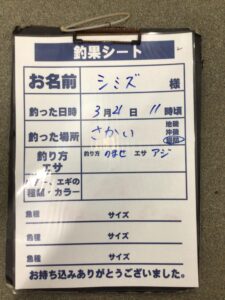 釣果シート
お名前 シミズ 様
釣った日時 3月21日 11時頃
釣った場所 さかい 地磯 沖磯 堤防
釣り方 エサ 釣り方 のませ エサ アジ
エギの種類・カラー
魚種 サイズ
魚種 サイズ
魚種 サイズ
お持ち込みありがとうございました。